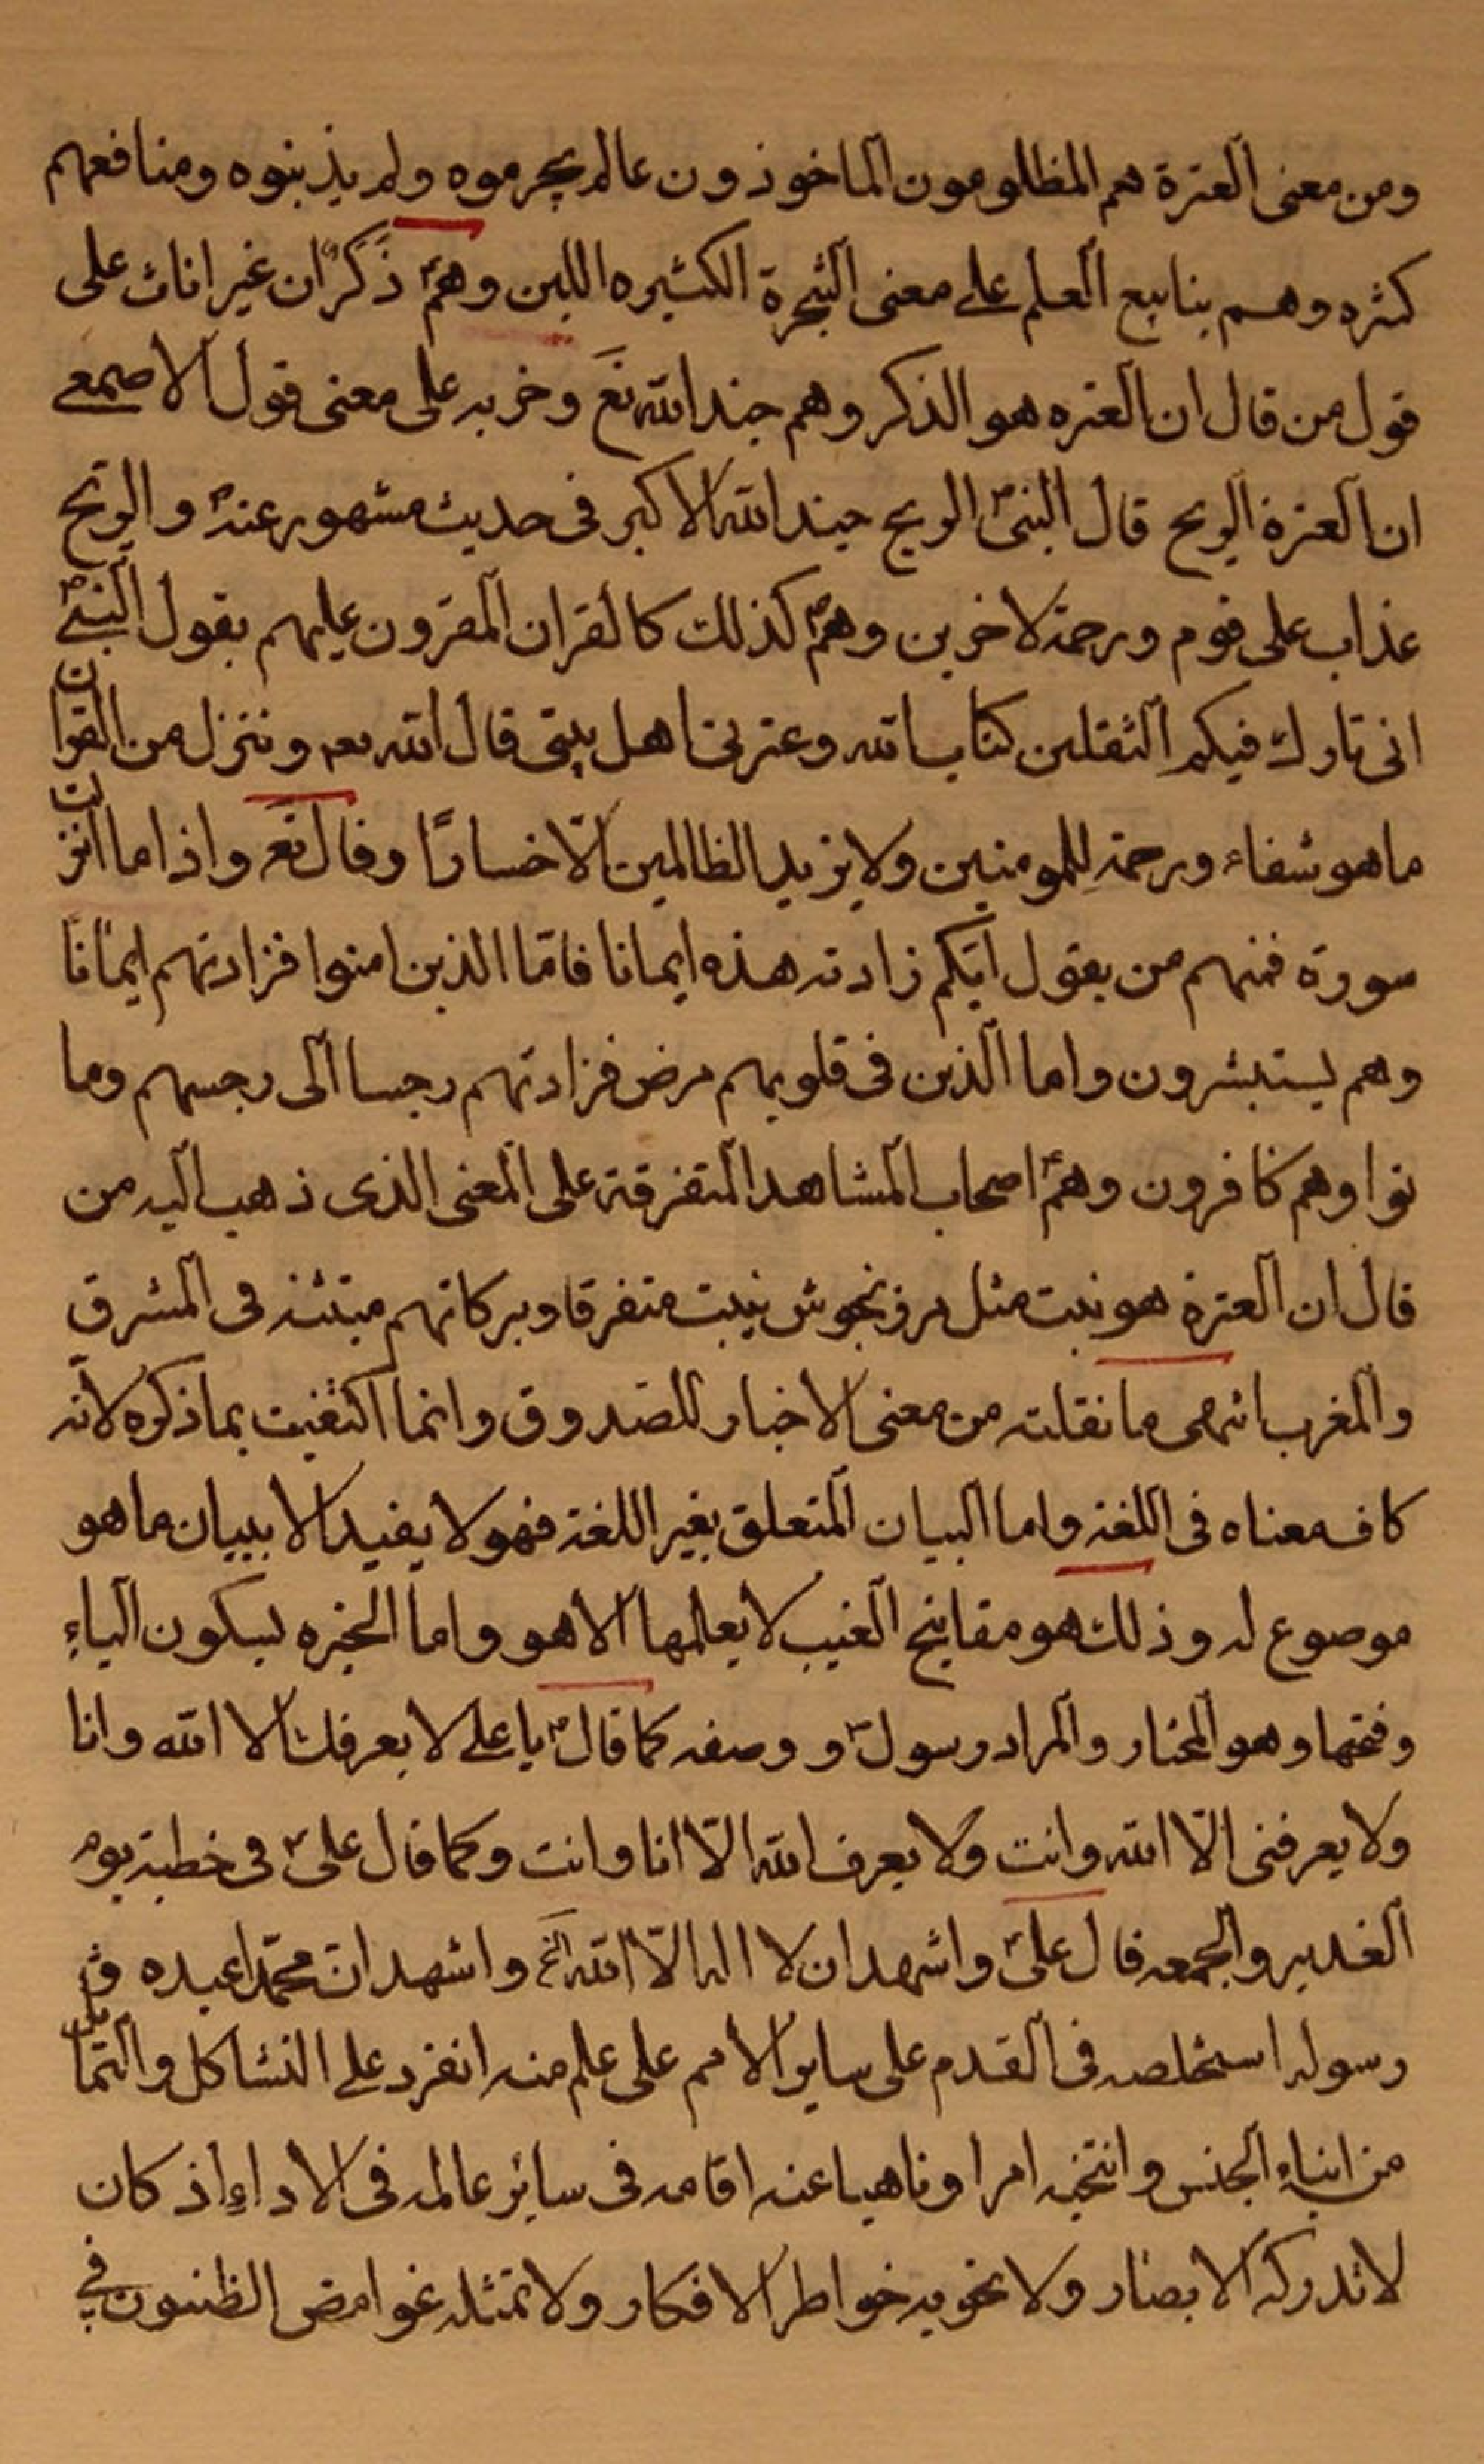 ومن معنى العترة هم المظلومون الماخوذون عالم يجرموه ولم يذبنوه ومنافعهم
كثره وهم ينابيع العلم على معنى الشجرة الكثيره اللبن وهم ذكران غير اناث على
قول من قال ان العتره هو الذكر وهم جند الله تع وخربه على معنى قول الاصمعي
ان العترة الريح قال النبي الريح جند الله الاكبر في حديث مشهور عنه والريح
عذاب على قوم ورحمة لاخرين وهم كذلك كالقران المقرون عليهم بقول النبي
انى تارك فيكم الثقلين كتاب الله وعترتى اهل بيتى قال الله تعه وننزل من القران
ما هو شفاء ورحمة للمومنين ولا يزيد الظالمين الّا خسارًا وقال تع واذا ما انزلت
سورة فمنهم من يقول ايّكم زادته هذه ايمانا فامّا الذين امنوا فزادتهم ايمانا
وهم يستبشرون واما الذين فى قلوبهم مرض فزادتهم رجسا الى رجسهم وما
توا وهم كافرون وهم اصحاب المشاهد المتفرقة على المعنى الذى ذهب اليه من
قال ان العترة هو نبت مثل مرزنجوش ينبت متفرقا وبركاتهم منبثة فى المشرق
والمغرب انتهى ما نقلته من معنى الاخبار للصدوق وانما اكتفيت بما ذكره لانّه
كاف معناه فى اللغة واما البيان المتعلق بغير اللغة فهو لا يفيد الا ببيان ما هو
موضوع له وذلك هو مفاتيح الغيب لا يعلمها الا هو واما الخيره بسكون الياء
وفتحها وهو المختار والمراد رسول و وصفه كما قال يا على لا يعرفك الا الله وانا
ولا يعرفنى الّا الله وانت ولا يعرف الله الّا انا وانت وكما قال على فى خطبة يوم
الغدير والجمعه قال على واشهد ان لا اله الّا الله الخ واشهد انّ محمّدا عبده و
رسوله استخلصه فى القدم على ساير الامم على علم منه انفرد على التشاكل والتماثل
من ابناء الجنس وانتجبه امرا وناهيا عنه اقامه فى سائر عالمه فى الاداء اذ كان
لا تدركه الابصار ولا تحويه خواطر الافكار ولا تمثله غوامض الظنون في